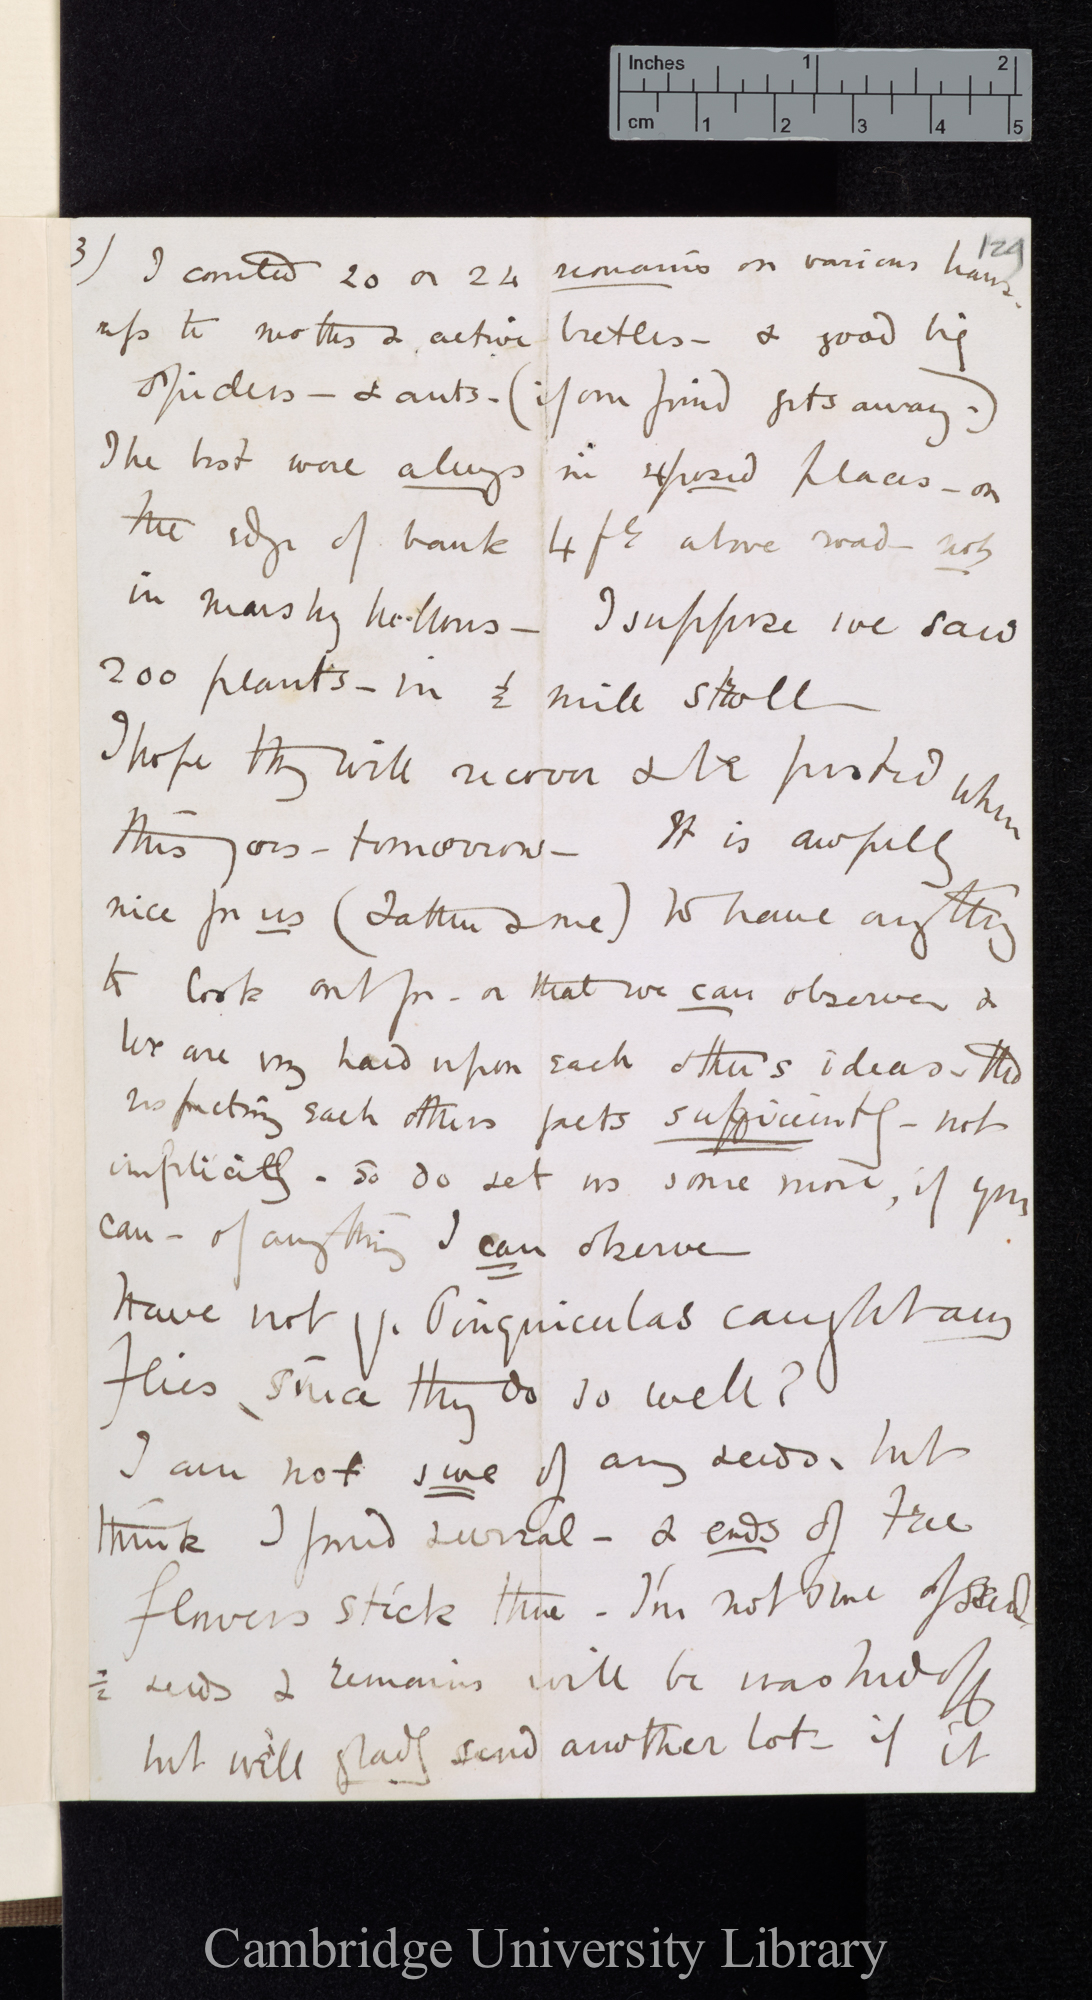 Inches 1 2
cm 1 2 3 4 5
129
3) I counted 20 or 24 remains on various leaves.
ups to moths & active beetles — & good big
Spiders — & ants — (if our friend gets away.)
The best were always in exposed places — on
the edge of bank 4 ft above road — not
in marshy hollows — I suppose we saw
200 plants — in ½ mile stroll —
I hope they will recover & be posted when
this goes — tomorrow — It is awfully
nice for us (Father & me) to have anything
to look out for — or that we can observe &
we are very hard upon each other's ideas — tho
respecting each others facts sufficiently — not
implicitly — so do set us some more, if you
can — of anything I can observe —
Have not yr. Pinguiculas caught any
Flies, since they do so well?
I am not sure of any seeds, but
think I found several — & ends of Tree
flowers stick there — I'm not sure of seed
½ seeds & remains will be washed off
but will gladly send another lot — if it
Cambridge University Library